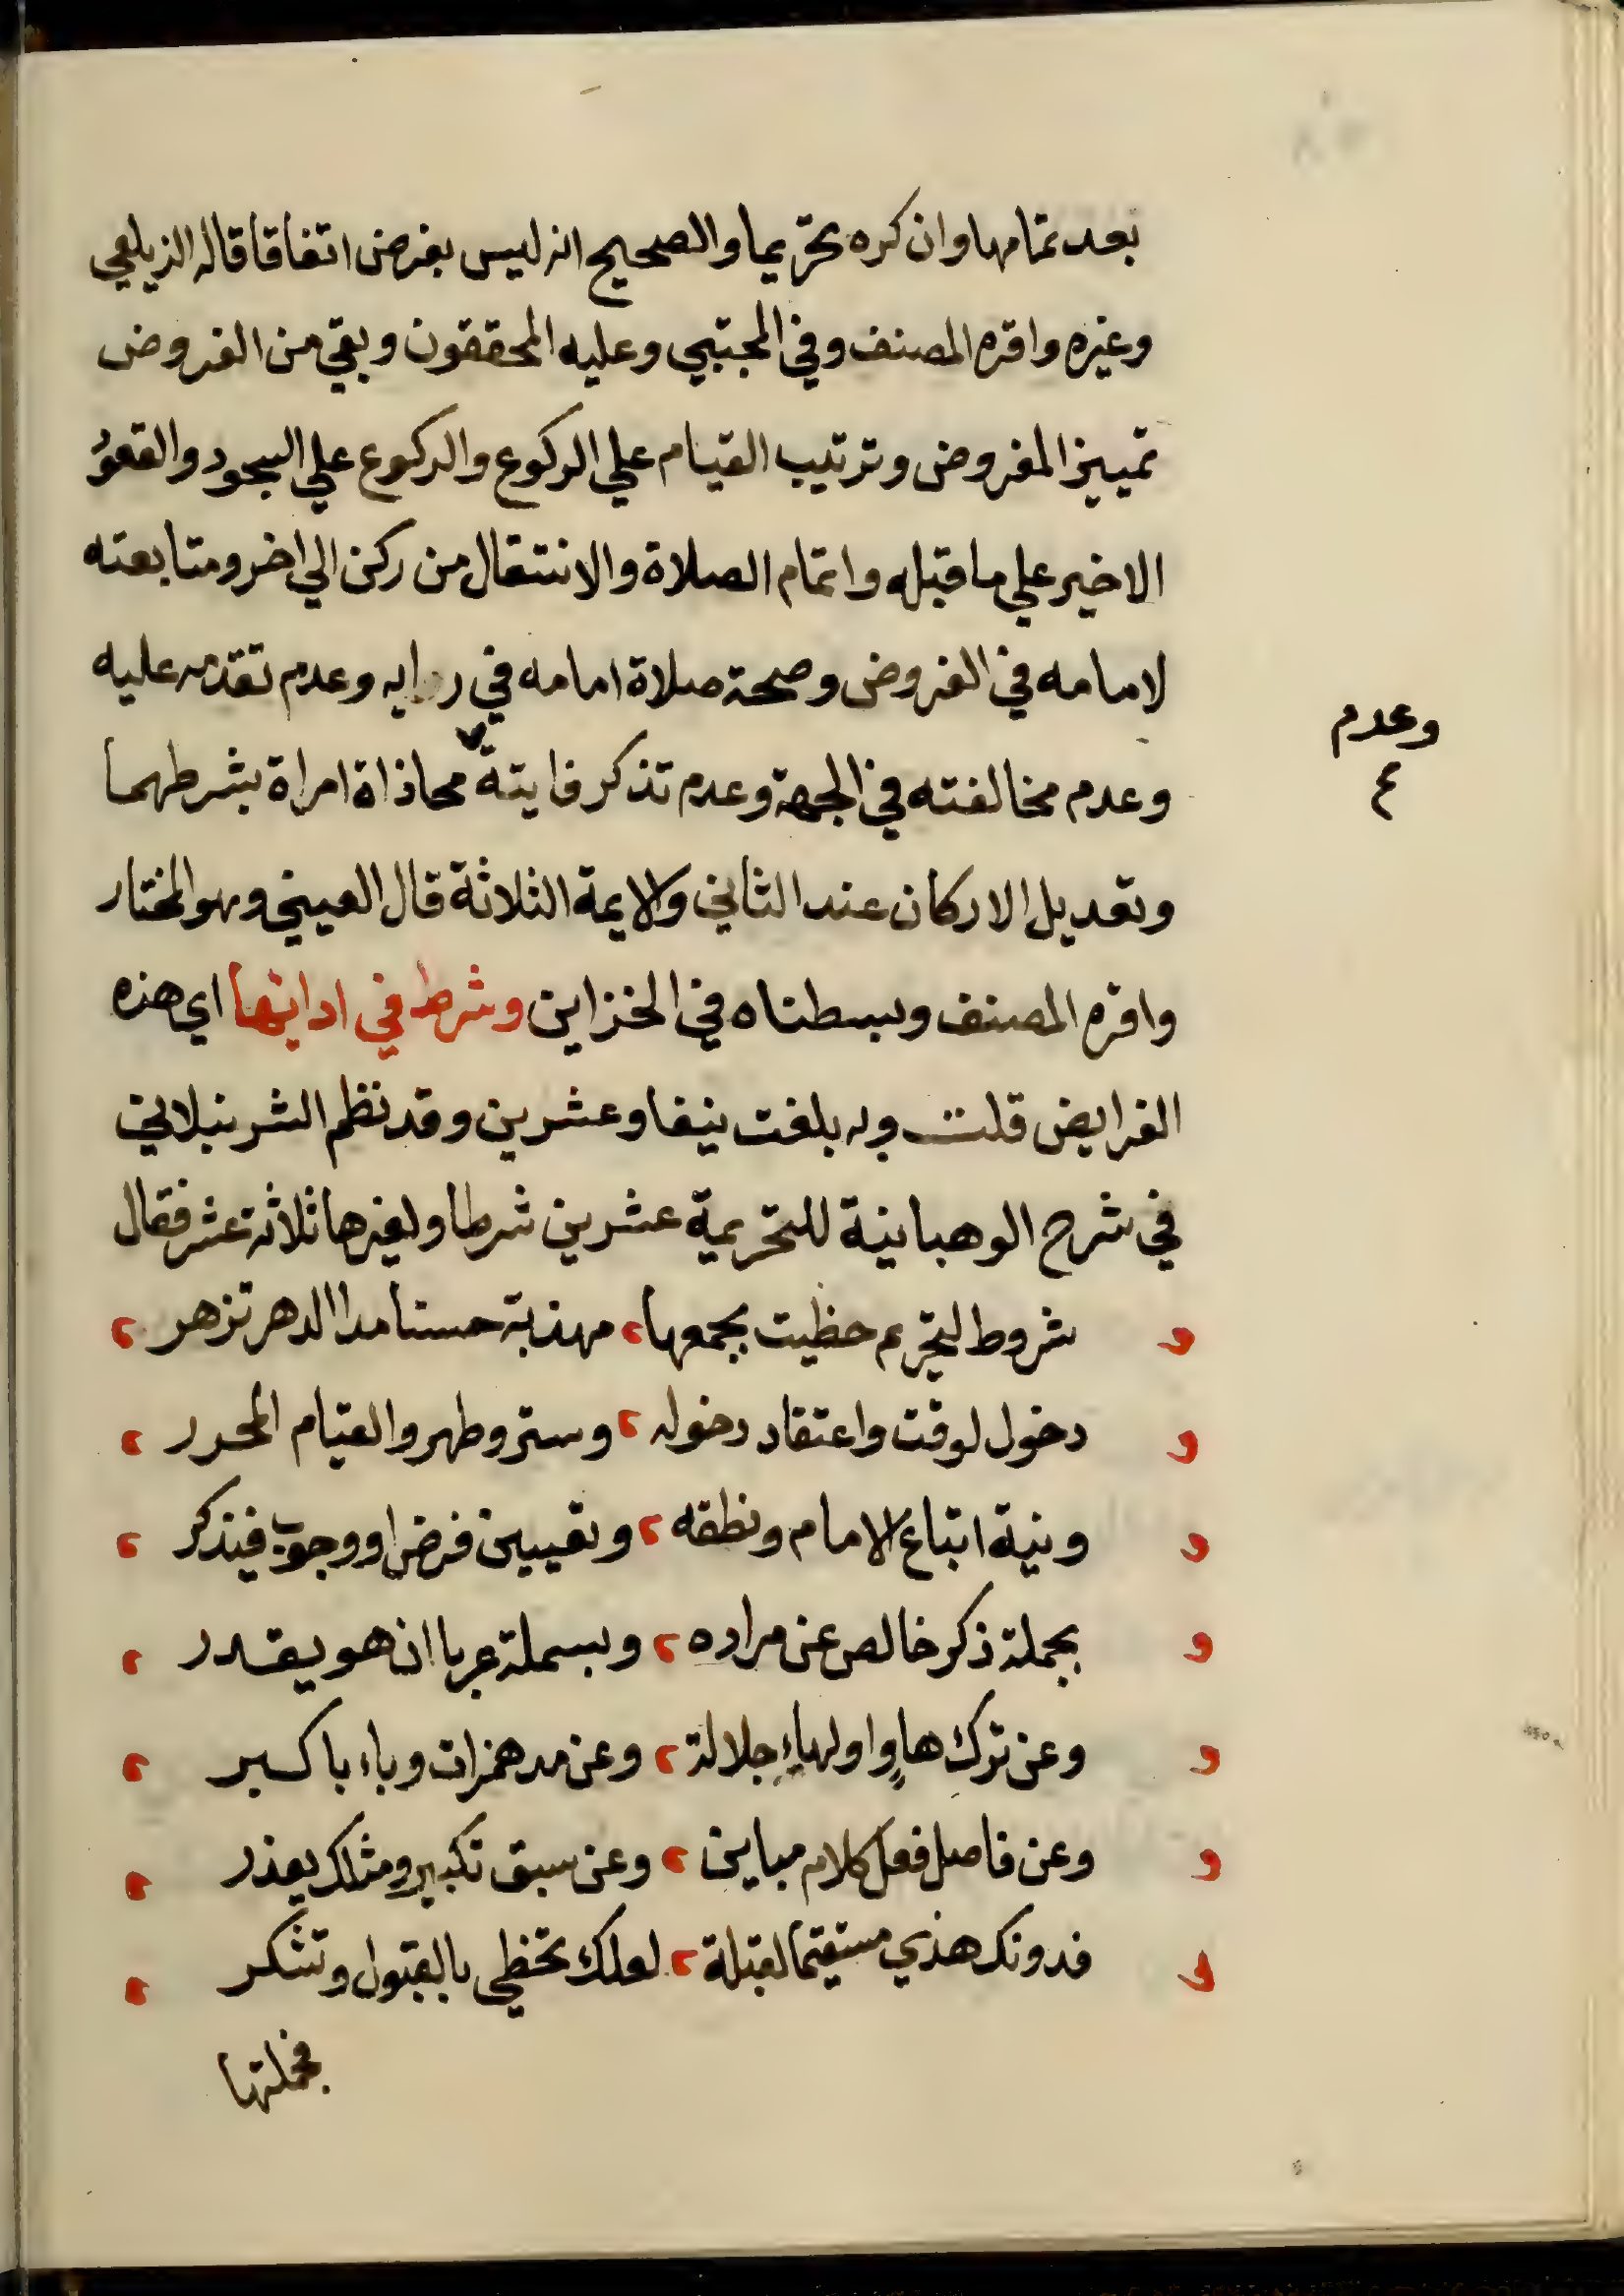 بعد تمامها وان كره تحريما والصحيح انه ليس بفرض اتفاقا قاله الزيلعي
وغيره واقره المصنف وفي المجتبي وعليه المحققون وبقي من الفروض
تمييز المفروض وترتيب القيام علي الركوع والركوع علي السجود والقعود
الاخير علي ما قبله واتمام الصلاة والانتقال من ركن الي اخر ومتابعته
لامامه في الفروض وصحة صلاة امامه في رايه وعدم تقدمه عليه
وعدم مخالفته في الجهة وعدم تذكر فايتة محاذاة امراة بشرطهما
وعدم
٤
وتعديل الاركان عند الثاني والايمة الثلاثة قال العيني وهو المختار
واقره المصنف وبسطناه في الخزاين وشرط في ادائها اي هذه
الفرايض قلت وبه بلغت نيفا وعشرين وقد نظم الشرنبلالي
في شرح الوهبانية للتحريمة عشرين شرطا ولغيرها ثلاثة عشر فقال
شروط لتحريم حظيت بجمعها، مهذبة حسنا مدا الدهر تزهر
دخول لوقت واعتقاد دخوله، وستر وطهر والقيام المحرر
ونية اتباع الامام ونطقه، وتعيين فرض او وجوب فيذكر
بجملة ذكر خالص عن مراده، وبسملة عربا ان هو يقدر
وعن ترك هاو او لهاء جلالة، وعن مد همزات وباء باكبر
وعن فاصل فعل كلام مباين، وعن سبق تكبير ومثلك يعذر
فدونك هذي مستقيما لقبلة، لعلك تحظي بالقبول وتشكر
فجملتها